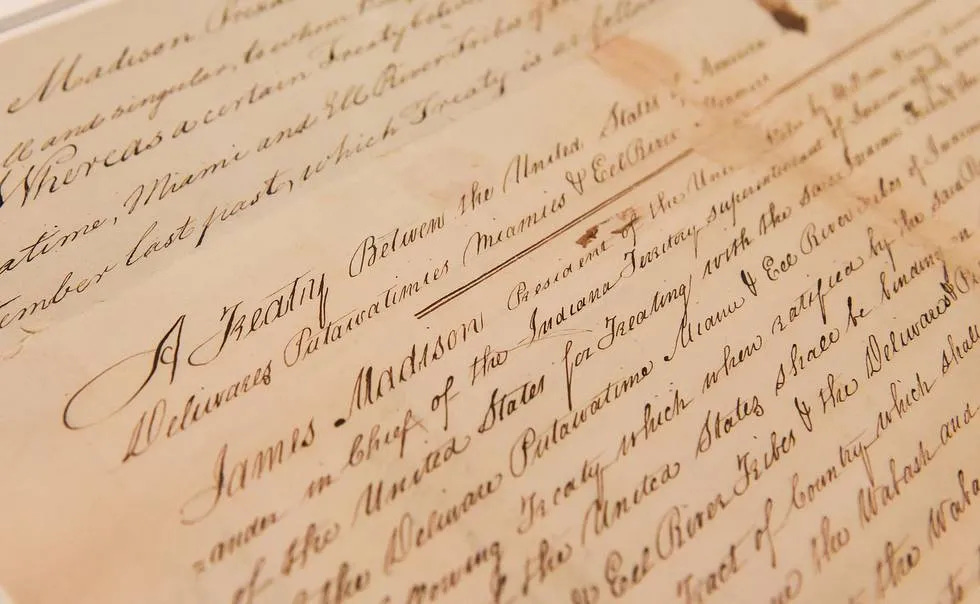 Madison Presi
ll and singular, to whom
Whereas a certain Treaty betw
atime, Miami and Ell River Tribes of
ember last past, which Treaty is as follow
A Treaty Betwen the United States of America
Deliwares Putawatimies Miamies & Eel River
James Madison President of the Unit States by William
ander in Chief of the Indiana Territory superintendant of Indian
of the United States for Treating with the said Indian
the Deliware Putawatime Miame & Eel River Tribes of
llowing Treaty which when ratified by the said
the United States shall be binding on
& Eel River Tribes & the Deliwares &
Tract of Country which shall
the Wabash and
the Waba